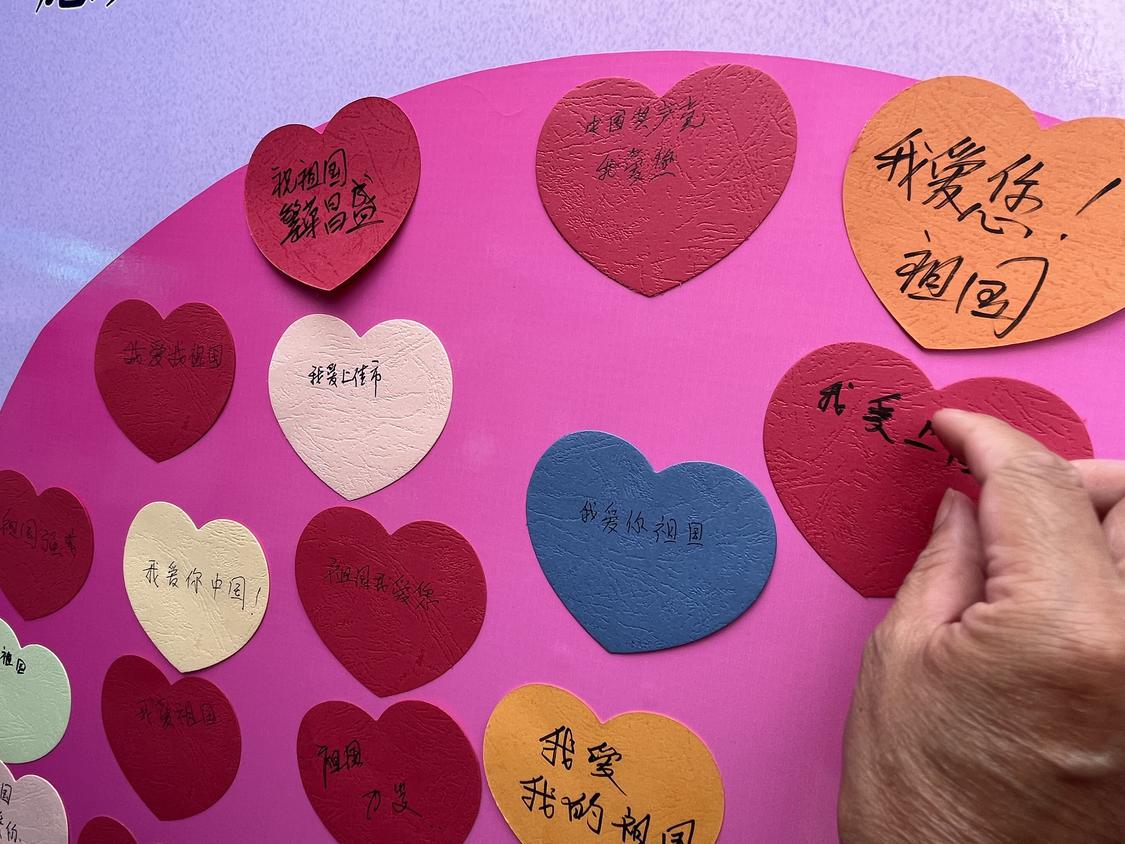 祝祖国
繁荣昌盛
中国共产党
我爱您
我爱您!
祖国
我爱我祖国
我爱上佳市
我爱
我爱你祖国
祖国强
我爱你中国!
祖国我爱您
祖国
我爱祖国
祖国
我爱
我的祖国
国